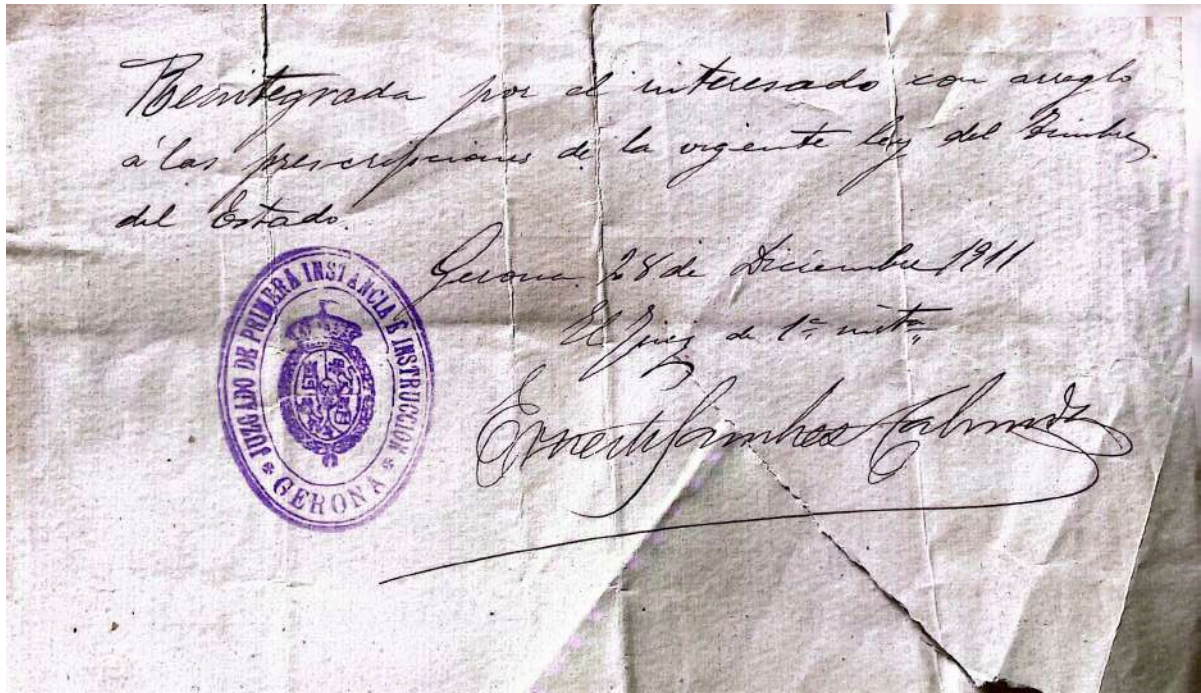 Reintegrada por el interesado con arreglo
á las prescripciones de la vigente ley del Timbre
del Estado.
Gerona 28 de Diciembre 1911
El Juez de 1ª insta
Ernesto Sanchez
JUZGADO DE PRIMERA INSTANCIA É INSTRUCCION
* GERONA *